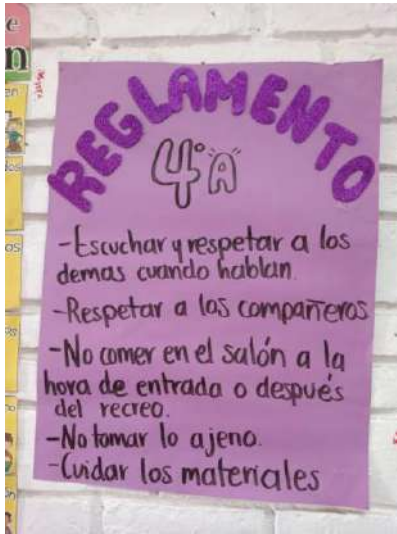 REGLAMENTO
4°A
-Escuchar y respetar a los
demas cuando hablan.
-Respetar a los compañeros
-No comer en el salón a la
hora de entrada o después
del recreo.
-No tomar lo ajeno.
-Cuidar los materiales